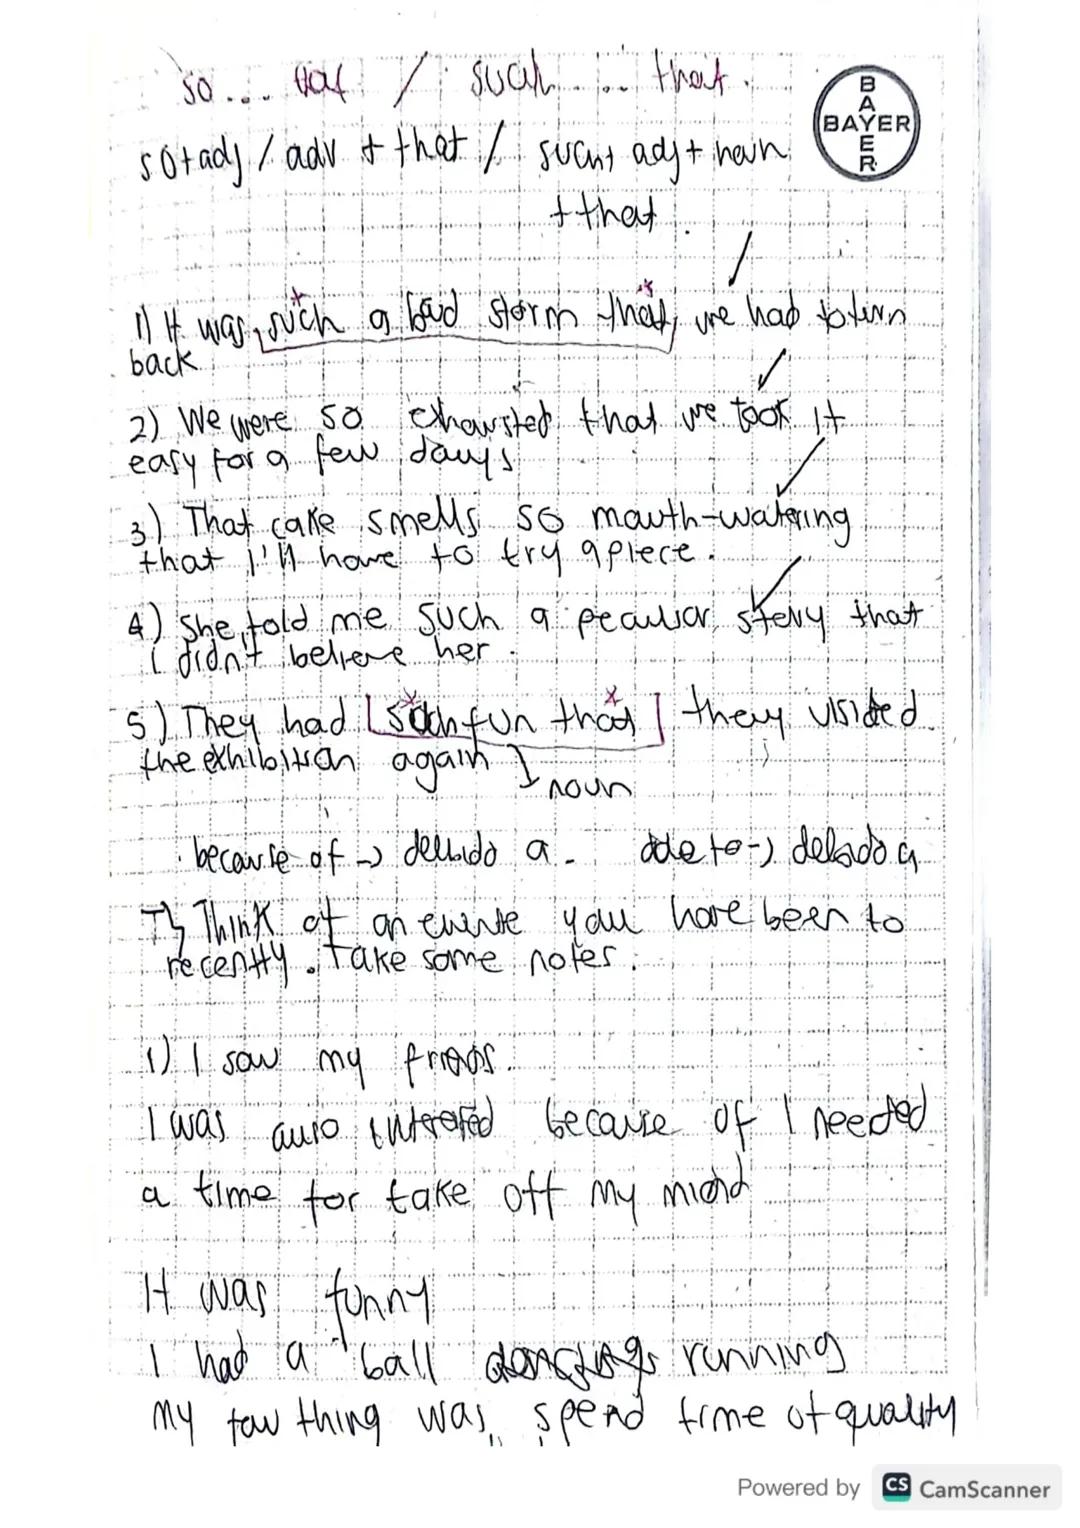 so... that / such ... that.
BAYER
BAYER
so+adj / adv + that / such+ adj + noun
+ that
1) It was such a bad storm that we had to turn
back
2) We were so exhausted that we took it
easy for a few days
3) That cake smells so mouth-watering
that I'll have to try a piece.
4) She told me such a peculiar story that
I didn't believe her.
5) They had such fun that they visided
the exhibition again
noun
because of → debido a. due to → debido a
7) Think of an evente you have been to
recently. Take some notes.
1) I saw my friends.
I was interested because of I needed
a time for take off my mind
It was funny
I had a ball running
my fav thing was spend time of quality
Powered by CS CamScanner